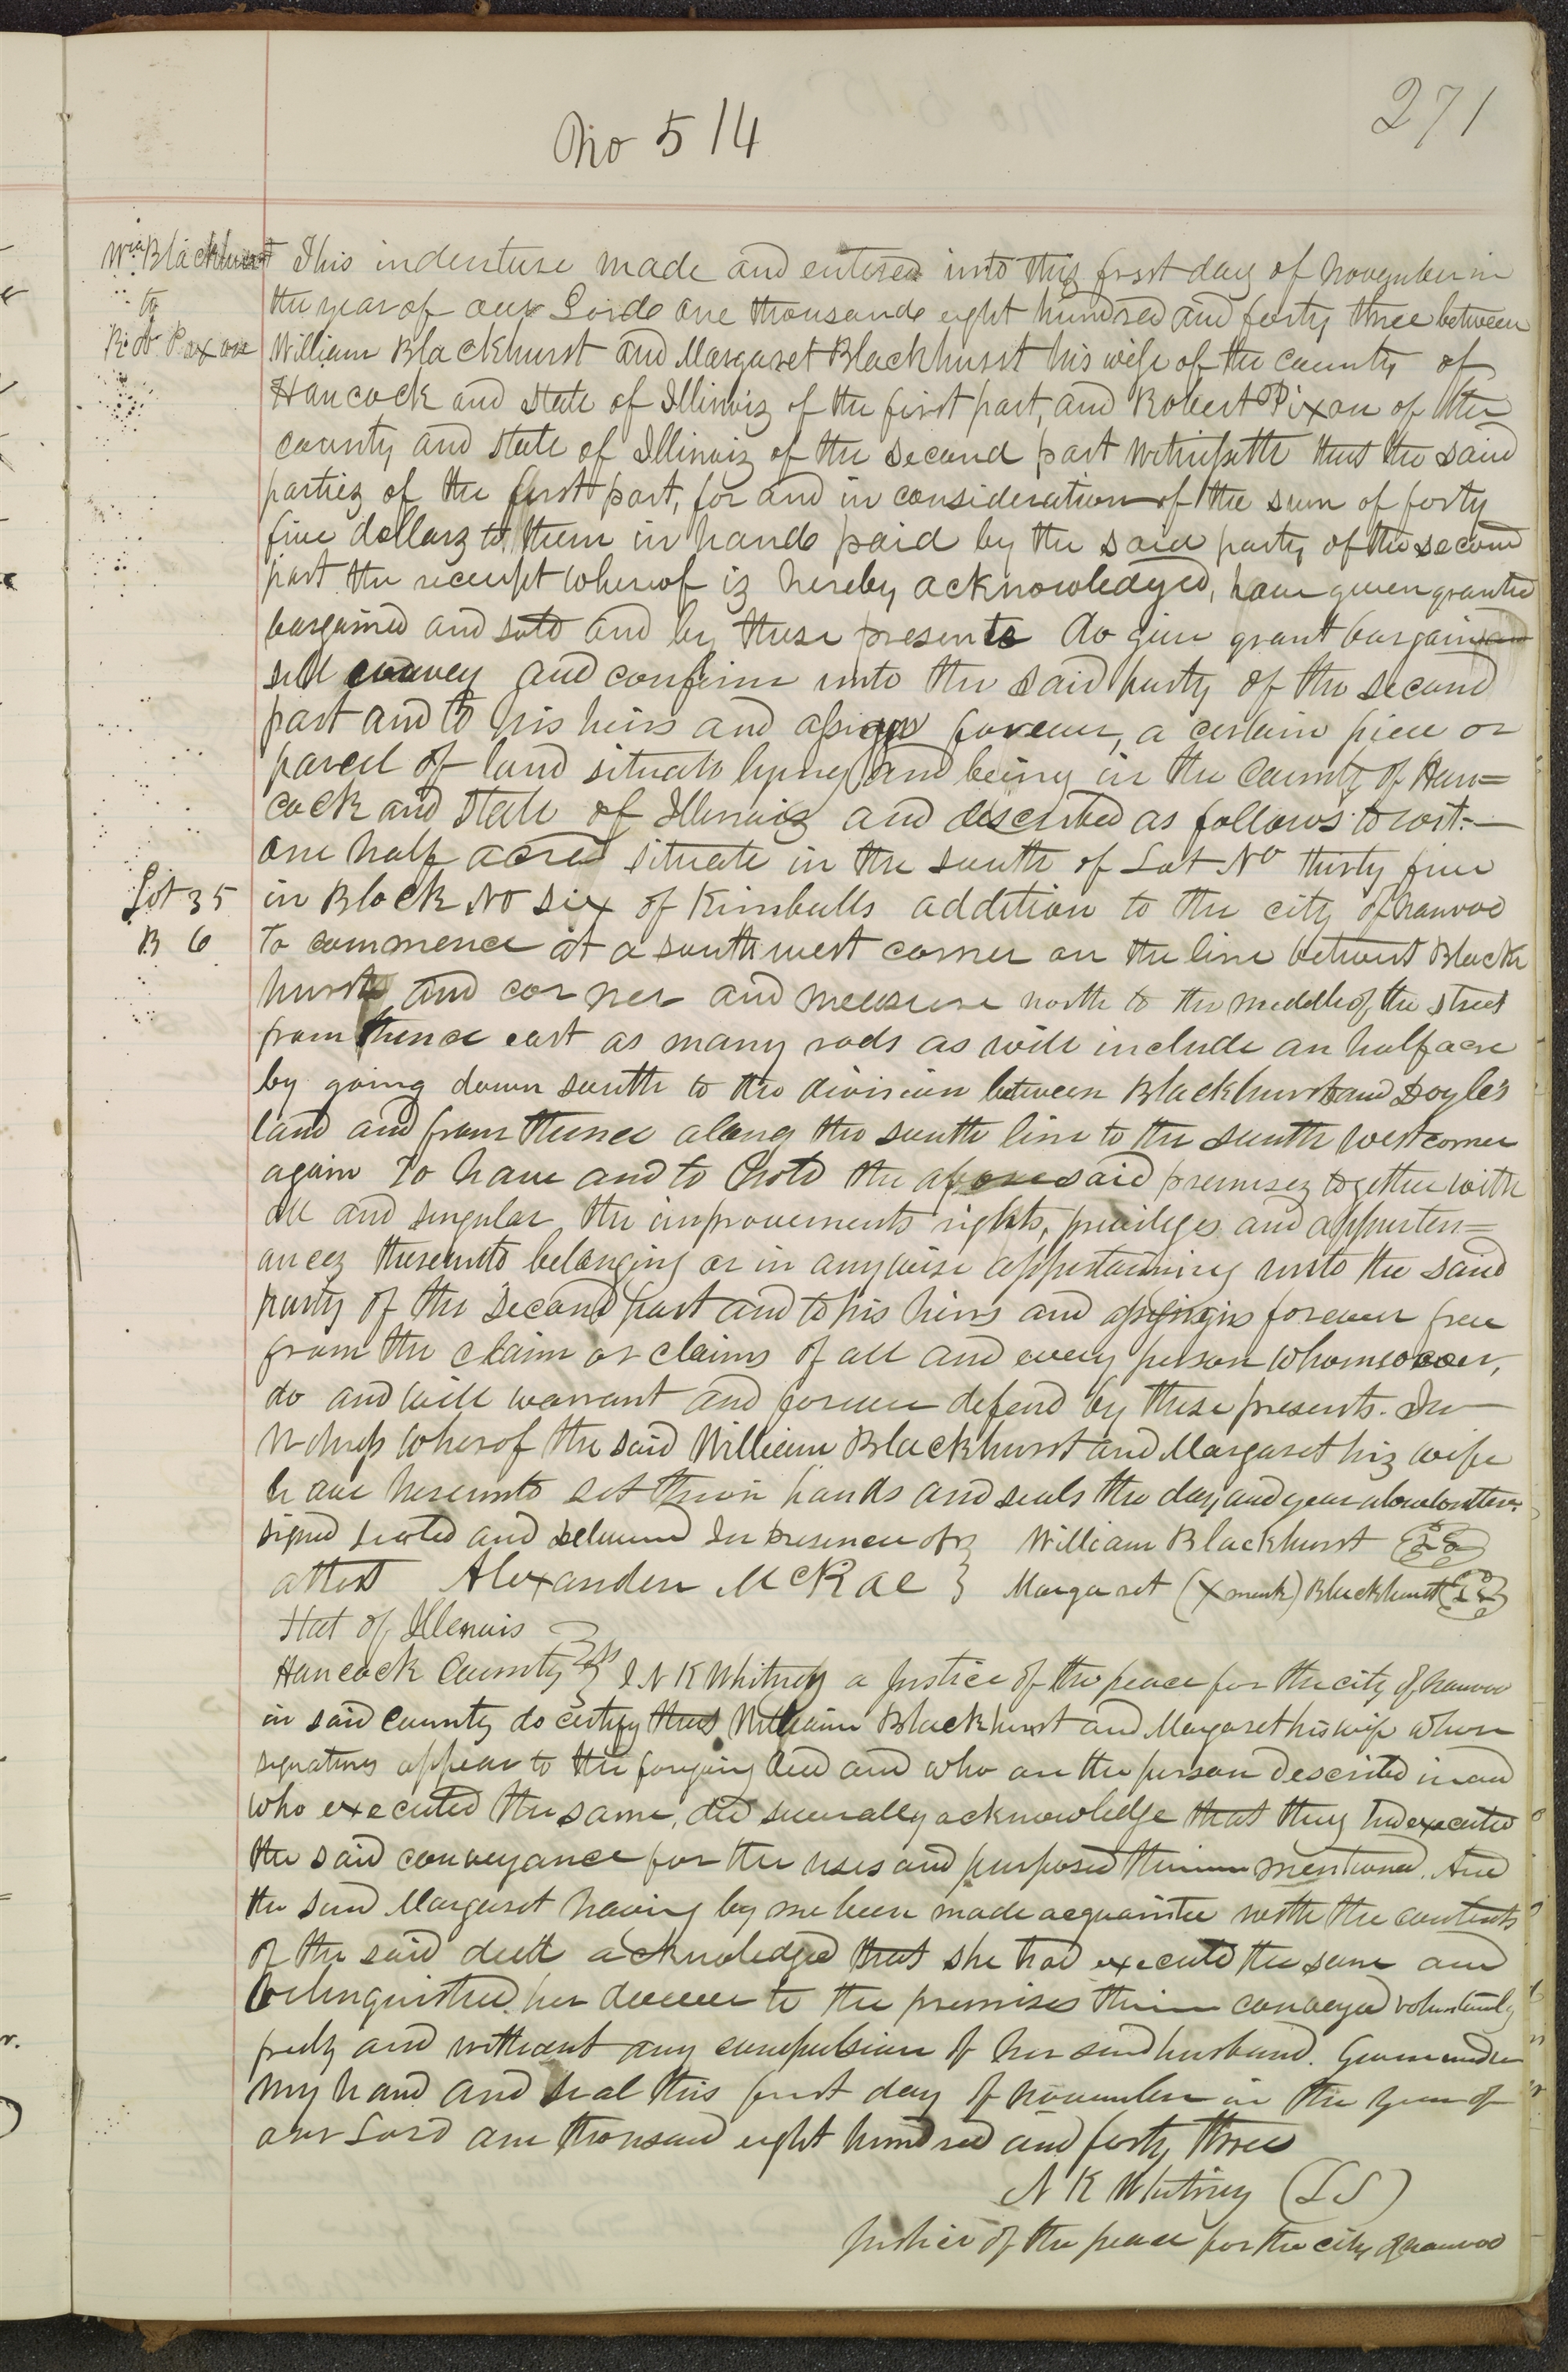 271
No 514
Wm Blackhurst
to
Lot 35
B 6
This indenture made and entered into this first day of November in
the year of our Lord one thousand eight hundred and forty three between
William Blackhurst and Margaret Blackhurst his wife of the county of
Hancock and State of Illinoiz of the first part, and Robert Pixon of the
county and State of Illinoiz of the second part Witnesseth that the said
partiez of the first part, for and in consideration of the sum of forty
five dollarz to them in hand paid by the said party of the second
part the receipt whereof iz hereby acknowledged, have given granted
bargained and sold and by these presents do give grant bargain and
sell convey and confirm unto the said party of the second
part and to his heirs and assigns forever, a certain piece or
parcel of land situate lying and being in the County of Han=
cock and State of Illinoiz and described as follows to wit:—
one half acre situate in the south of Lot No thirty five
in Block No six of Kimballs addition to the city of Nauvoo
To commence at a south west corner on the line betwixt Black
hurst and corner and measure north to the middle of the street
from thence east as many rods as will include an half acre
by going down south to the division between Blackhurst and Doyle's
land and from thence along the south line to the south west corner
again To have and to hold the aforesaid premisez together with
all and singular the improvements rights, privileges and apperten=
ancez thereunto belonging or in anywise appertaining unto the said
party of the second part and to his heirs and assigns forever free
from the claim or claims of all and every person whomsoever,
do and will warrant and forever defend by these presents. In
Witness whereof the said William Blackhurst and Margaret hiz wife
have hereunto set their hands and seals the day and year above written.
signed sealed and delivered In presence of } William Blackhurst (LS)
attest Alexander McRae } Margaret (X mark) Blackhurst (LS)
Stat of Illenois
Hancock County } ss I N K Whitney a Justice of the peace for the city of Nauvoo
in said County do certify that William Blackhurst and Margaret his wife whose
signatures appear to the forgoing deed and who are the person described in and
who executed the same, did severally acknowledge that they had executed
the said conveyance for the uses and purposed therein mentioned. And
the said Margaret having by me been made acquainted with the contents
of the said deed acknowledged that she had executd the same and
relinquished her dower to the premises therein conveyed voluntarily
freely and without any compulsion of her said husband. Given under
my hand and seal this first day of November in the year of
our Lord one thousand eight hundred and forty three
N K Whitney (LS)
Justice of the peace for the city of Nauvoo